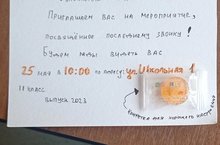 Приглашаем вас на мероприятие,
посвящённое последнему звонку!
Будем рады видеть вас
25 мая в 10:00 по адресу: ул. Школьная 1
11 класс
выпуск 2023
конфетка для хорошего настроения